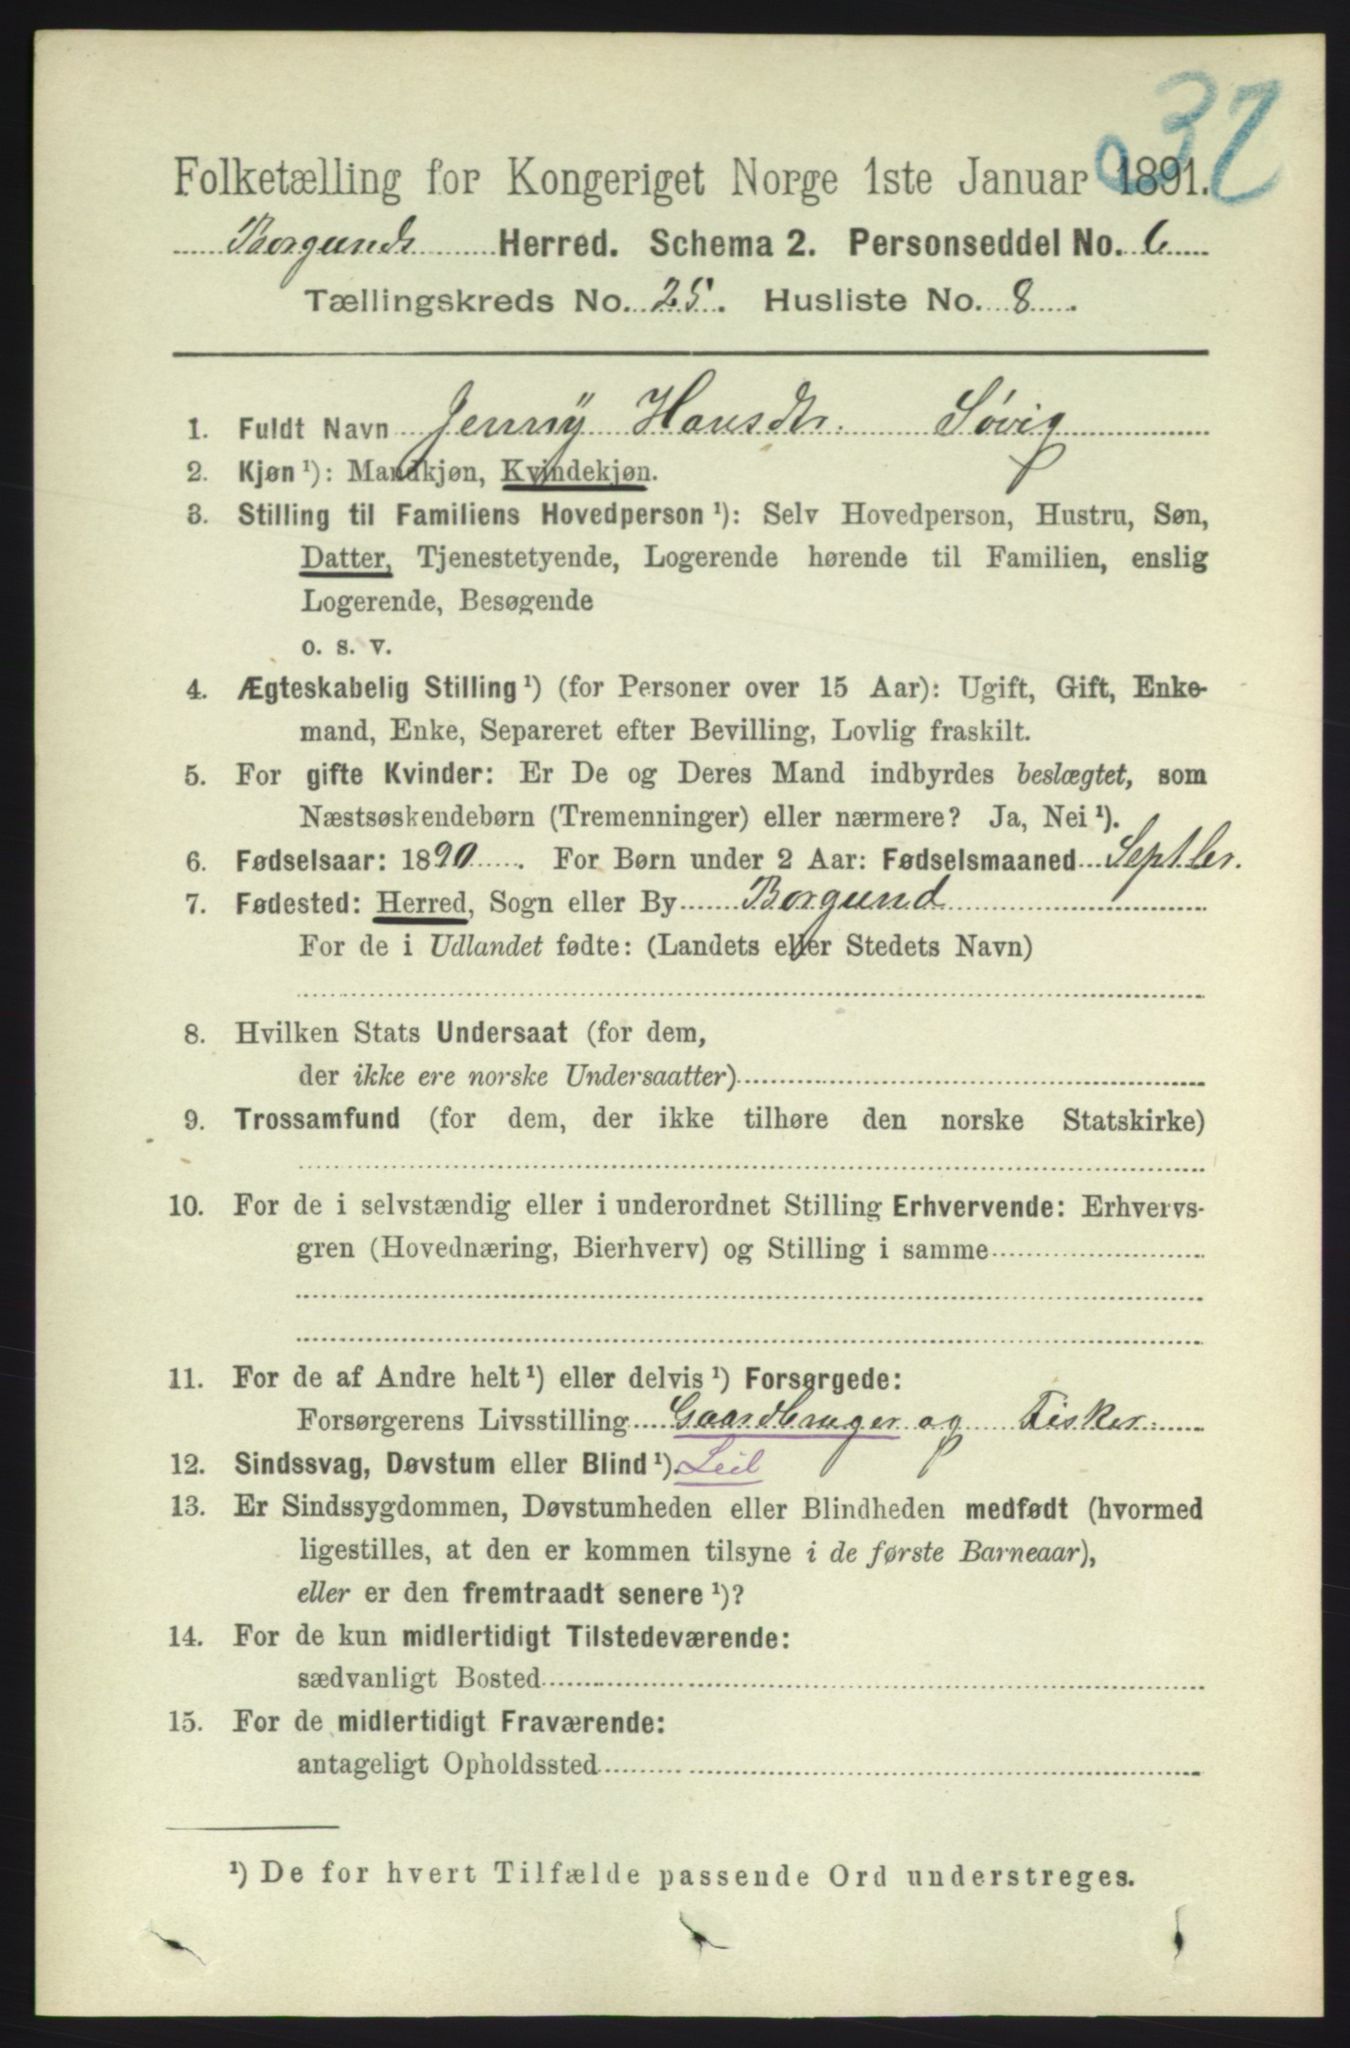 32
Folketælling for Kongeriget Norge 1ste Januar 1891.
Borgunds Herred. Schema 2. Personseddel No. 6
Tællingskreds No. 25. Husliste No. 8.
1. Fuldt Navn Jenny Hansdtr. Søvig
2. Kjøn ¹): Mandkjøn, Kvindekjøn.
3. Stilling til Familiens Hovedperson ¹): Selv Hovedperson, Hustru, Søn,
Datter, Tjenestetyende, Logerende hørende til Familien, enslig
Logerende, Besøgende
o. s. v.
4. Ægteskabelig Stilling ¹) (for Personer over 15 Aar): Ugift, Gift, Enke-
mand, Enke, Separeret efter Bevilling, Lovlig fraskilt.
5. For gifte Kvinder: Er De og Deres Mand indbyrdes beslægtet, som
Næstsøskendebørn (Tremenninger) eller nærmere? Ja, Nei ¹).
6. Fødselsaar: 1890. For Børn under 2 Aar: Fødselsmaaned Septbr.
7. Fødested: Herred, Sogn eller By Borgund
For de i Udlandet fødte: (Landets eller Stedets Navn)
8. Hvilken Stats Undersaat (for dem,
der ikke ere norske Undersaatter)
9. Trossamfund (for dem, der ikke tilhøre den norske Statskirke)
10. For de i selvstændig eller i underordnet Stilling Erhvervende: Erhvervs-
gren (Hovednæring, Bierhverv) og Stilling i samme
11. For de af Andre helt ¹) eller delvis ¹) Forsørgede:
Forsørgerens Livsstilling Gaardbruger og Fisker.
12. Sindssvag, Døvstum eller Blind ¹). Leil
13. Er Sindssygdommen, Døvstumheden eller Blindheden medfødt (hvormed
ligestilles, at den er kommen tilsyne i de første Barneaar),
eller er den fremtraadt senere ¹)?
14. For de kun midlertidigt Tilstedeværende:
sædvanligt Bosted
15. For de midlertidigt Fraværende:
antageligt Opholdssted
¹) De for hvert Tilfælde passende Ord understreges.